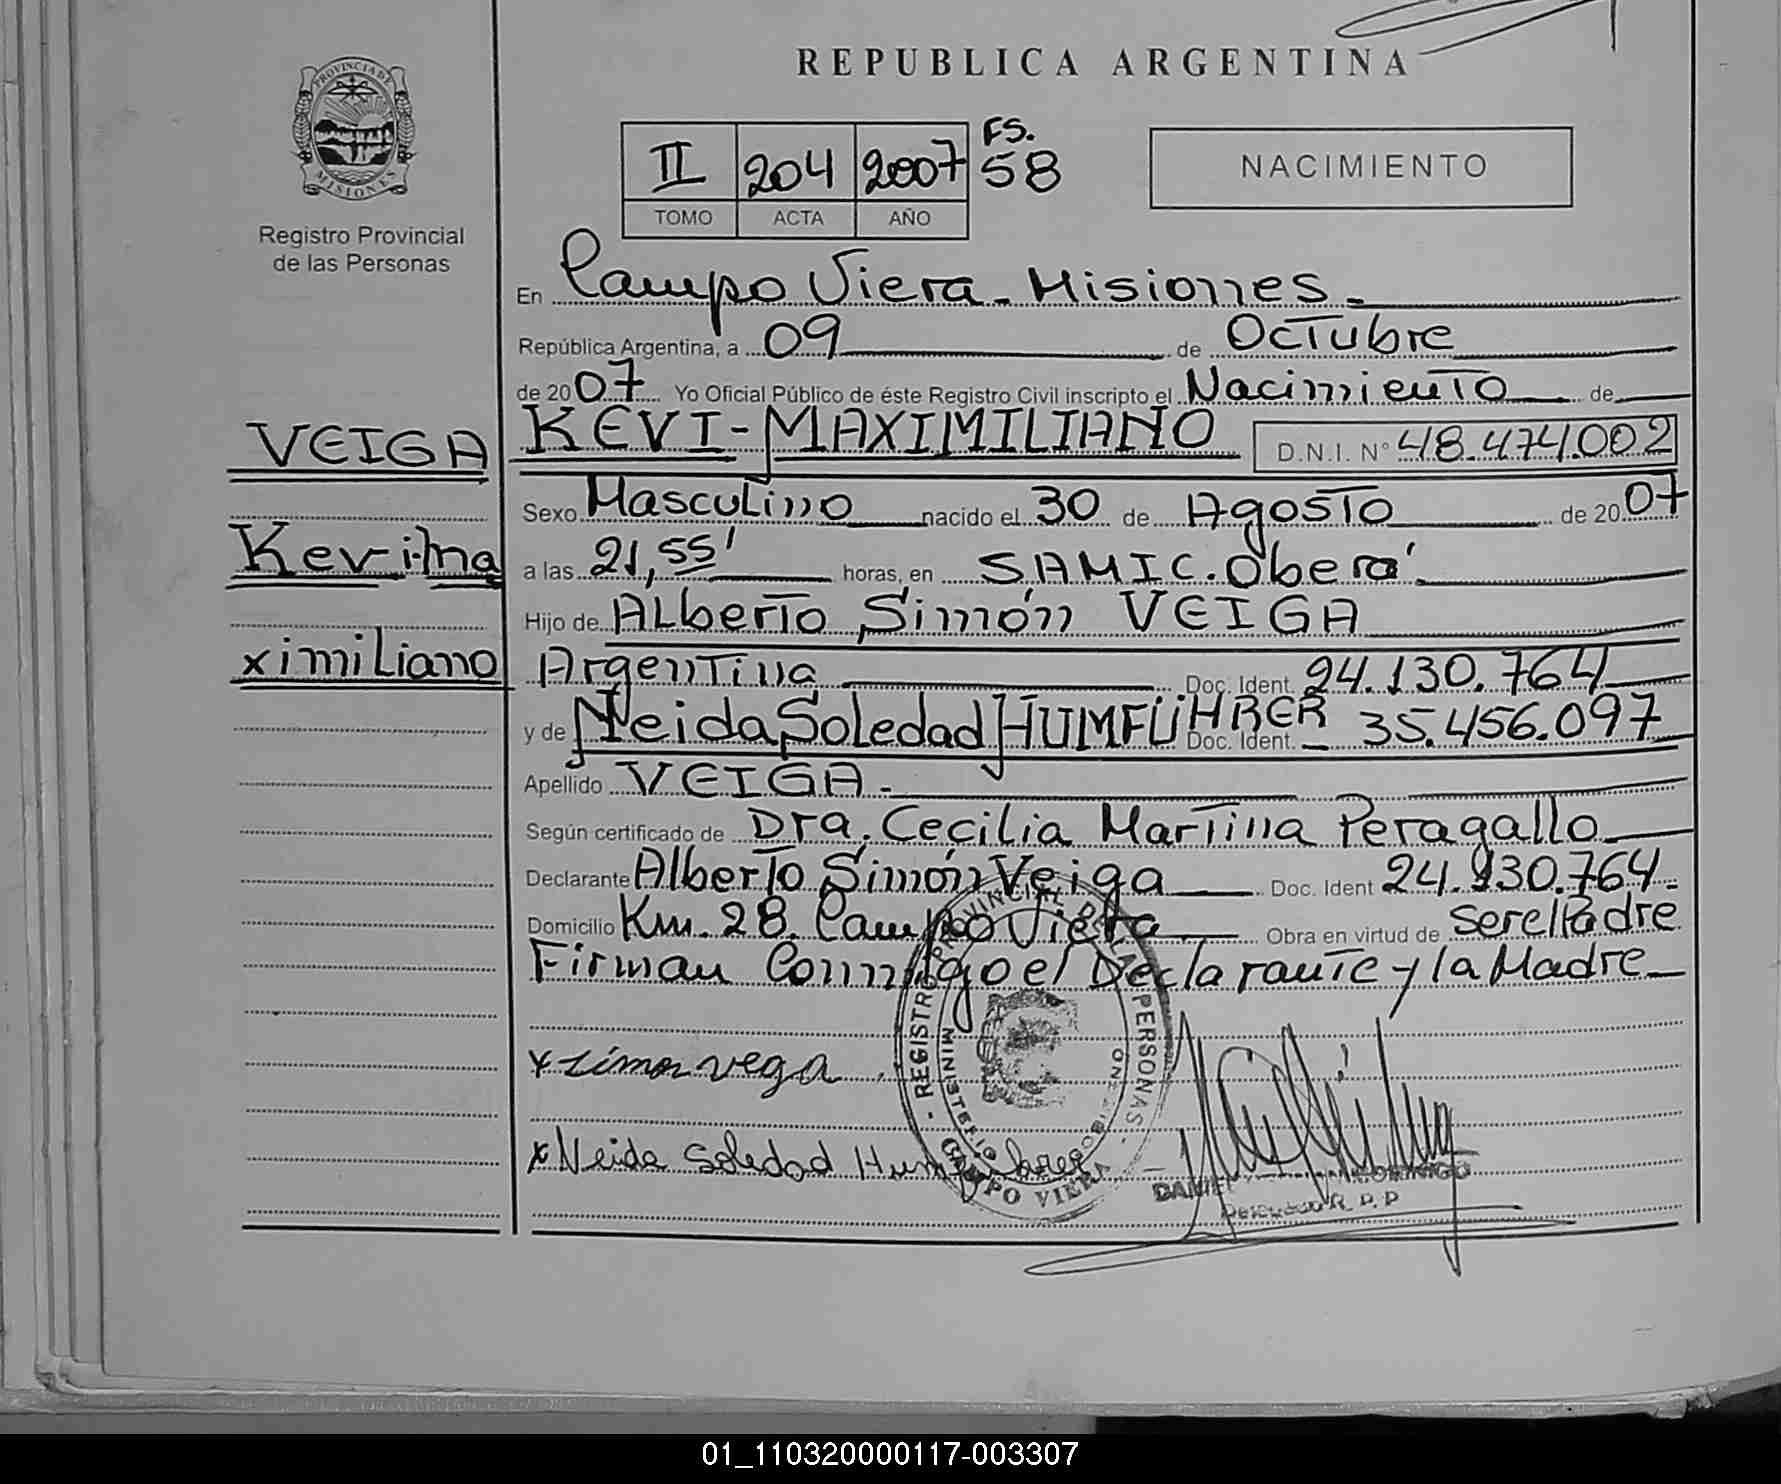 REPUBLICA ARGENTINA
PROVINCIA DE
MISIONES
Registro Provincial
de las Personas
II 204 2007 FS. 58
TOMO ACTA AÑO
NACIMIENTO
En Campo Viera - Misiones -
República Argentina, a 09 de Octubre
de 2007 Yo Oficial Público de éste Registro Civil inscripto el Nacimiento de
VEIGA
Kevi-Ma
ximiliano
KEVI-MAXIMILIANO D.N.I. Nº 48.474.002
Sexo Masculino nacido el 30 de Agosto de 2007
a las 21,55' horas, en SAMIC. Oberá
Hijo de Alberto Simón VEIGA
Argentina Doc. Ident. 24.130.764
y de Neida Soledad HUMFÜHRER Doc. Ident. 35.456.097
Apellido VEIGA -
Según certificado de Dra. Cecilia Martina Peragallo
Declarante Alberto Simón Veiga Doc. Ident 24.130.764-
Domicilio Km. 28. Campo Viera Obra en virtud de ser el Padre
Firman Conmigo el Declarante y la Madre
x Simon vega
x Neida Soledad
REGISTRO PROVINCIAL DE LAS PERSONAS -
MINISTERIO DE GOBIERNO
CAMPO VIERA
DANIEL
Delegado R. P. P
01_110320000117-003307